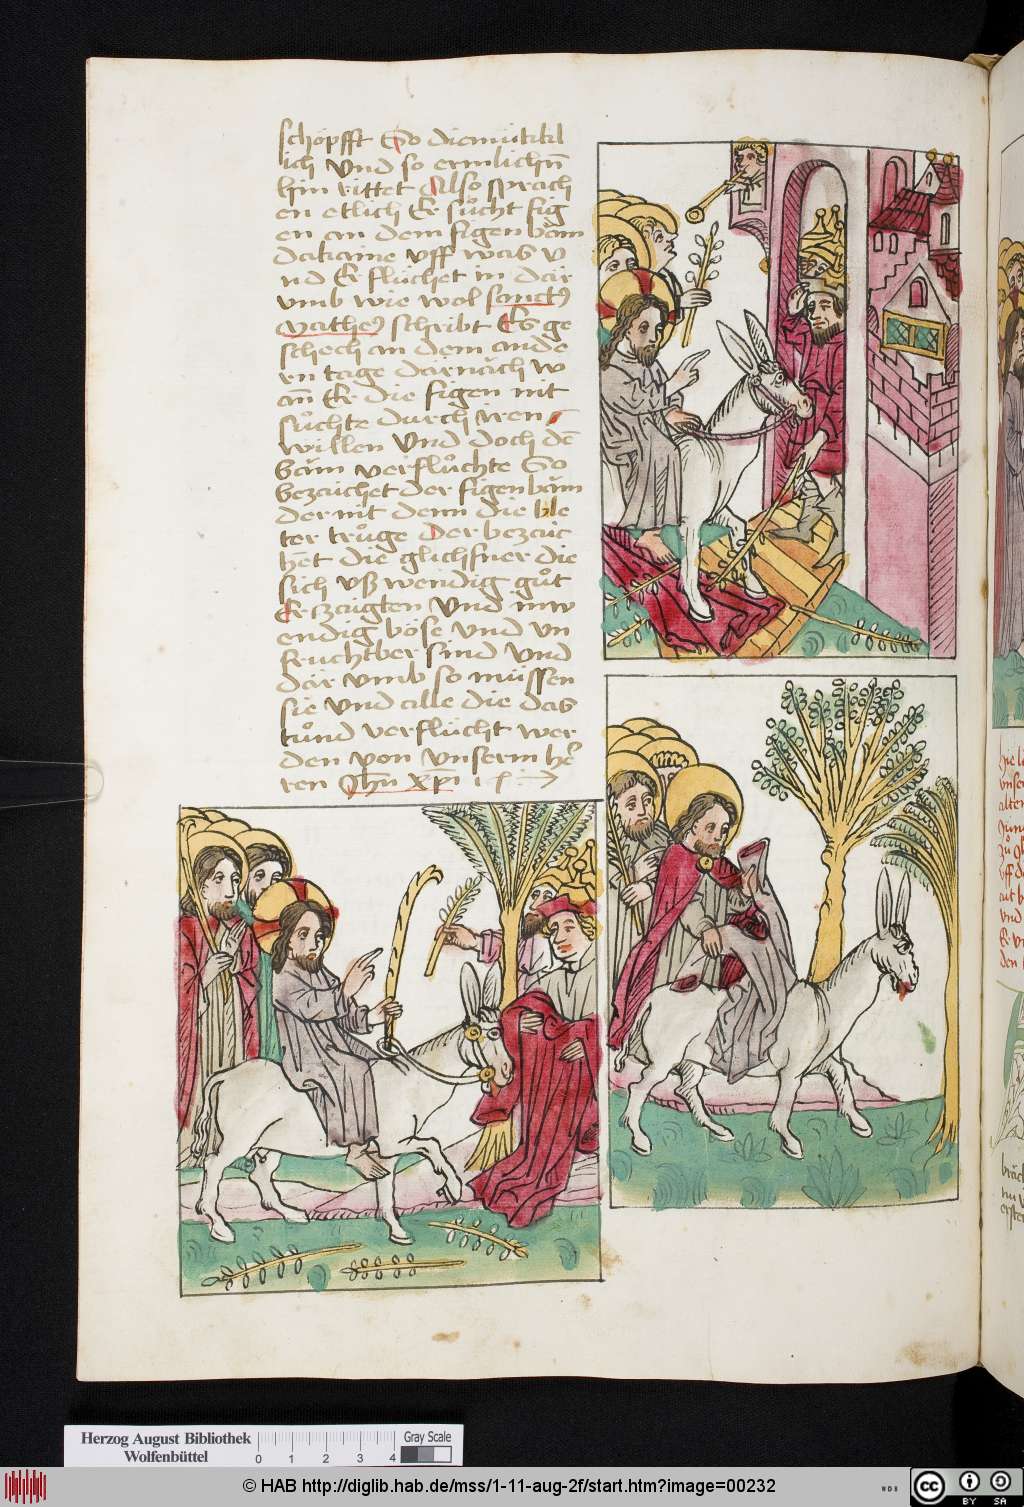 schöpfft So diemütickl
lich Vnd so ermlichñ
hin rittet Also sprach
en etlich Er sücht fig
en an dem figen bäm
da kaine vff was v
nd Er flüchet im där
vmb wie wol sanctꝰ
Matheꝰ schribt Es ge
schech an dem ande
rn tage därnäch w
añ Er die figen nit
sůchte durch iren
willen Vnd doch dē
bäm verflůchte So
bezaichet der figenbäm
der nit denn die ble
ter trůge Der bezaic
het die glichsner die
sich vß wendig gůt
Erzaigten Vnd inw
endig böse Vnd vn
fruchtber sind Vnd
där vmb so müssen
sie Vnd alle die das
tůnd verflücht wer
den von Vnserm he
ren Jhū xp̄i
Hie
vnser
alten
Jün
zů
vff
Vnd
Er
den
Herzog August Bibliothek
Wolfenbüttel
0 1 2 3 4
Gray Scale
© HAB http://diglib.hab.de/mss/1-11-aug-2f/start.htm?image=00232
WDB
cc BY SA